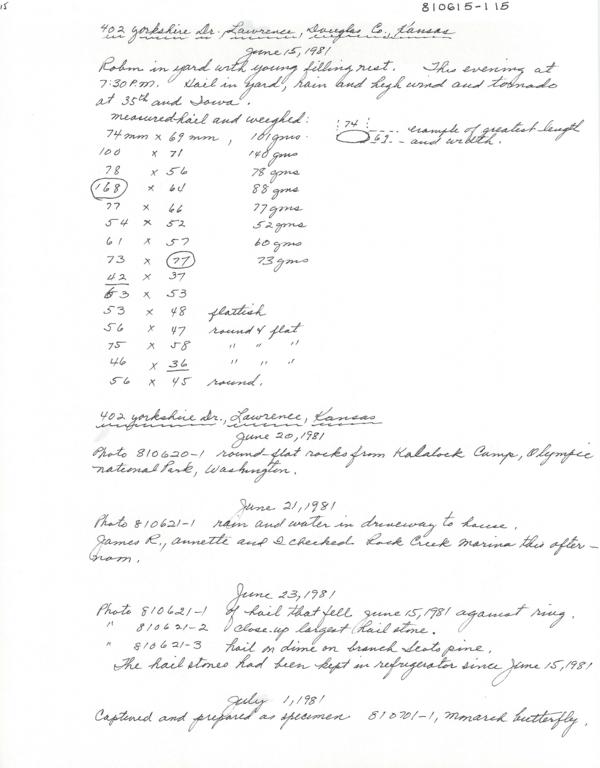 15
810615-115
402 Yorkshire Dr. Lawrence, Douglas Co., Kansas
June 15, 1981
Robin in yard with young filling nest. This evening at
7:30 P.M. Hail in yard, rain and high wind and tornado
at 35th and Iowa.
Measured hail and weighed:
74 mm x 69 mm, 101 gms.
74 example of greatest length
69 and width.
100 x 71 140 gms
78 x 56 78 gms
168 x 64 88 gms
77 x 66 77 gms
54 x 52 52 gms
61 x 57 60 gms
73 x 77 73 gms
42 x 37
63 x 53
53 x 48 flattish
56 x 47 round & flat
75 x 58 " " "
46 x 36 " " "
56 x 45 round.
402 Yorkshire Dr., Lawrence, Kansas
June 20, 1981
Photo 810620-1 round flat rocks from Kalalock Camp, Olympic
National Park, Washington.
June 21, 1981
Photo 810621-1 rain and water in driveway to house.
James R., Annette and I checked Rock Creek Marina this after-
noon.
June 23, 1981
Photo 810621-1 of hail that fell June 15, 1981 against ring.
" 810621-2 close up largest hail stone.
" 810621-3 hail on dime on branch Scots pine.
The hail stones had been kept in refrigerator since June 15, 1981
July 1, 1981
Captured and prepared as specimen 810701-1, Monarch butterfly.